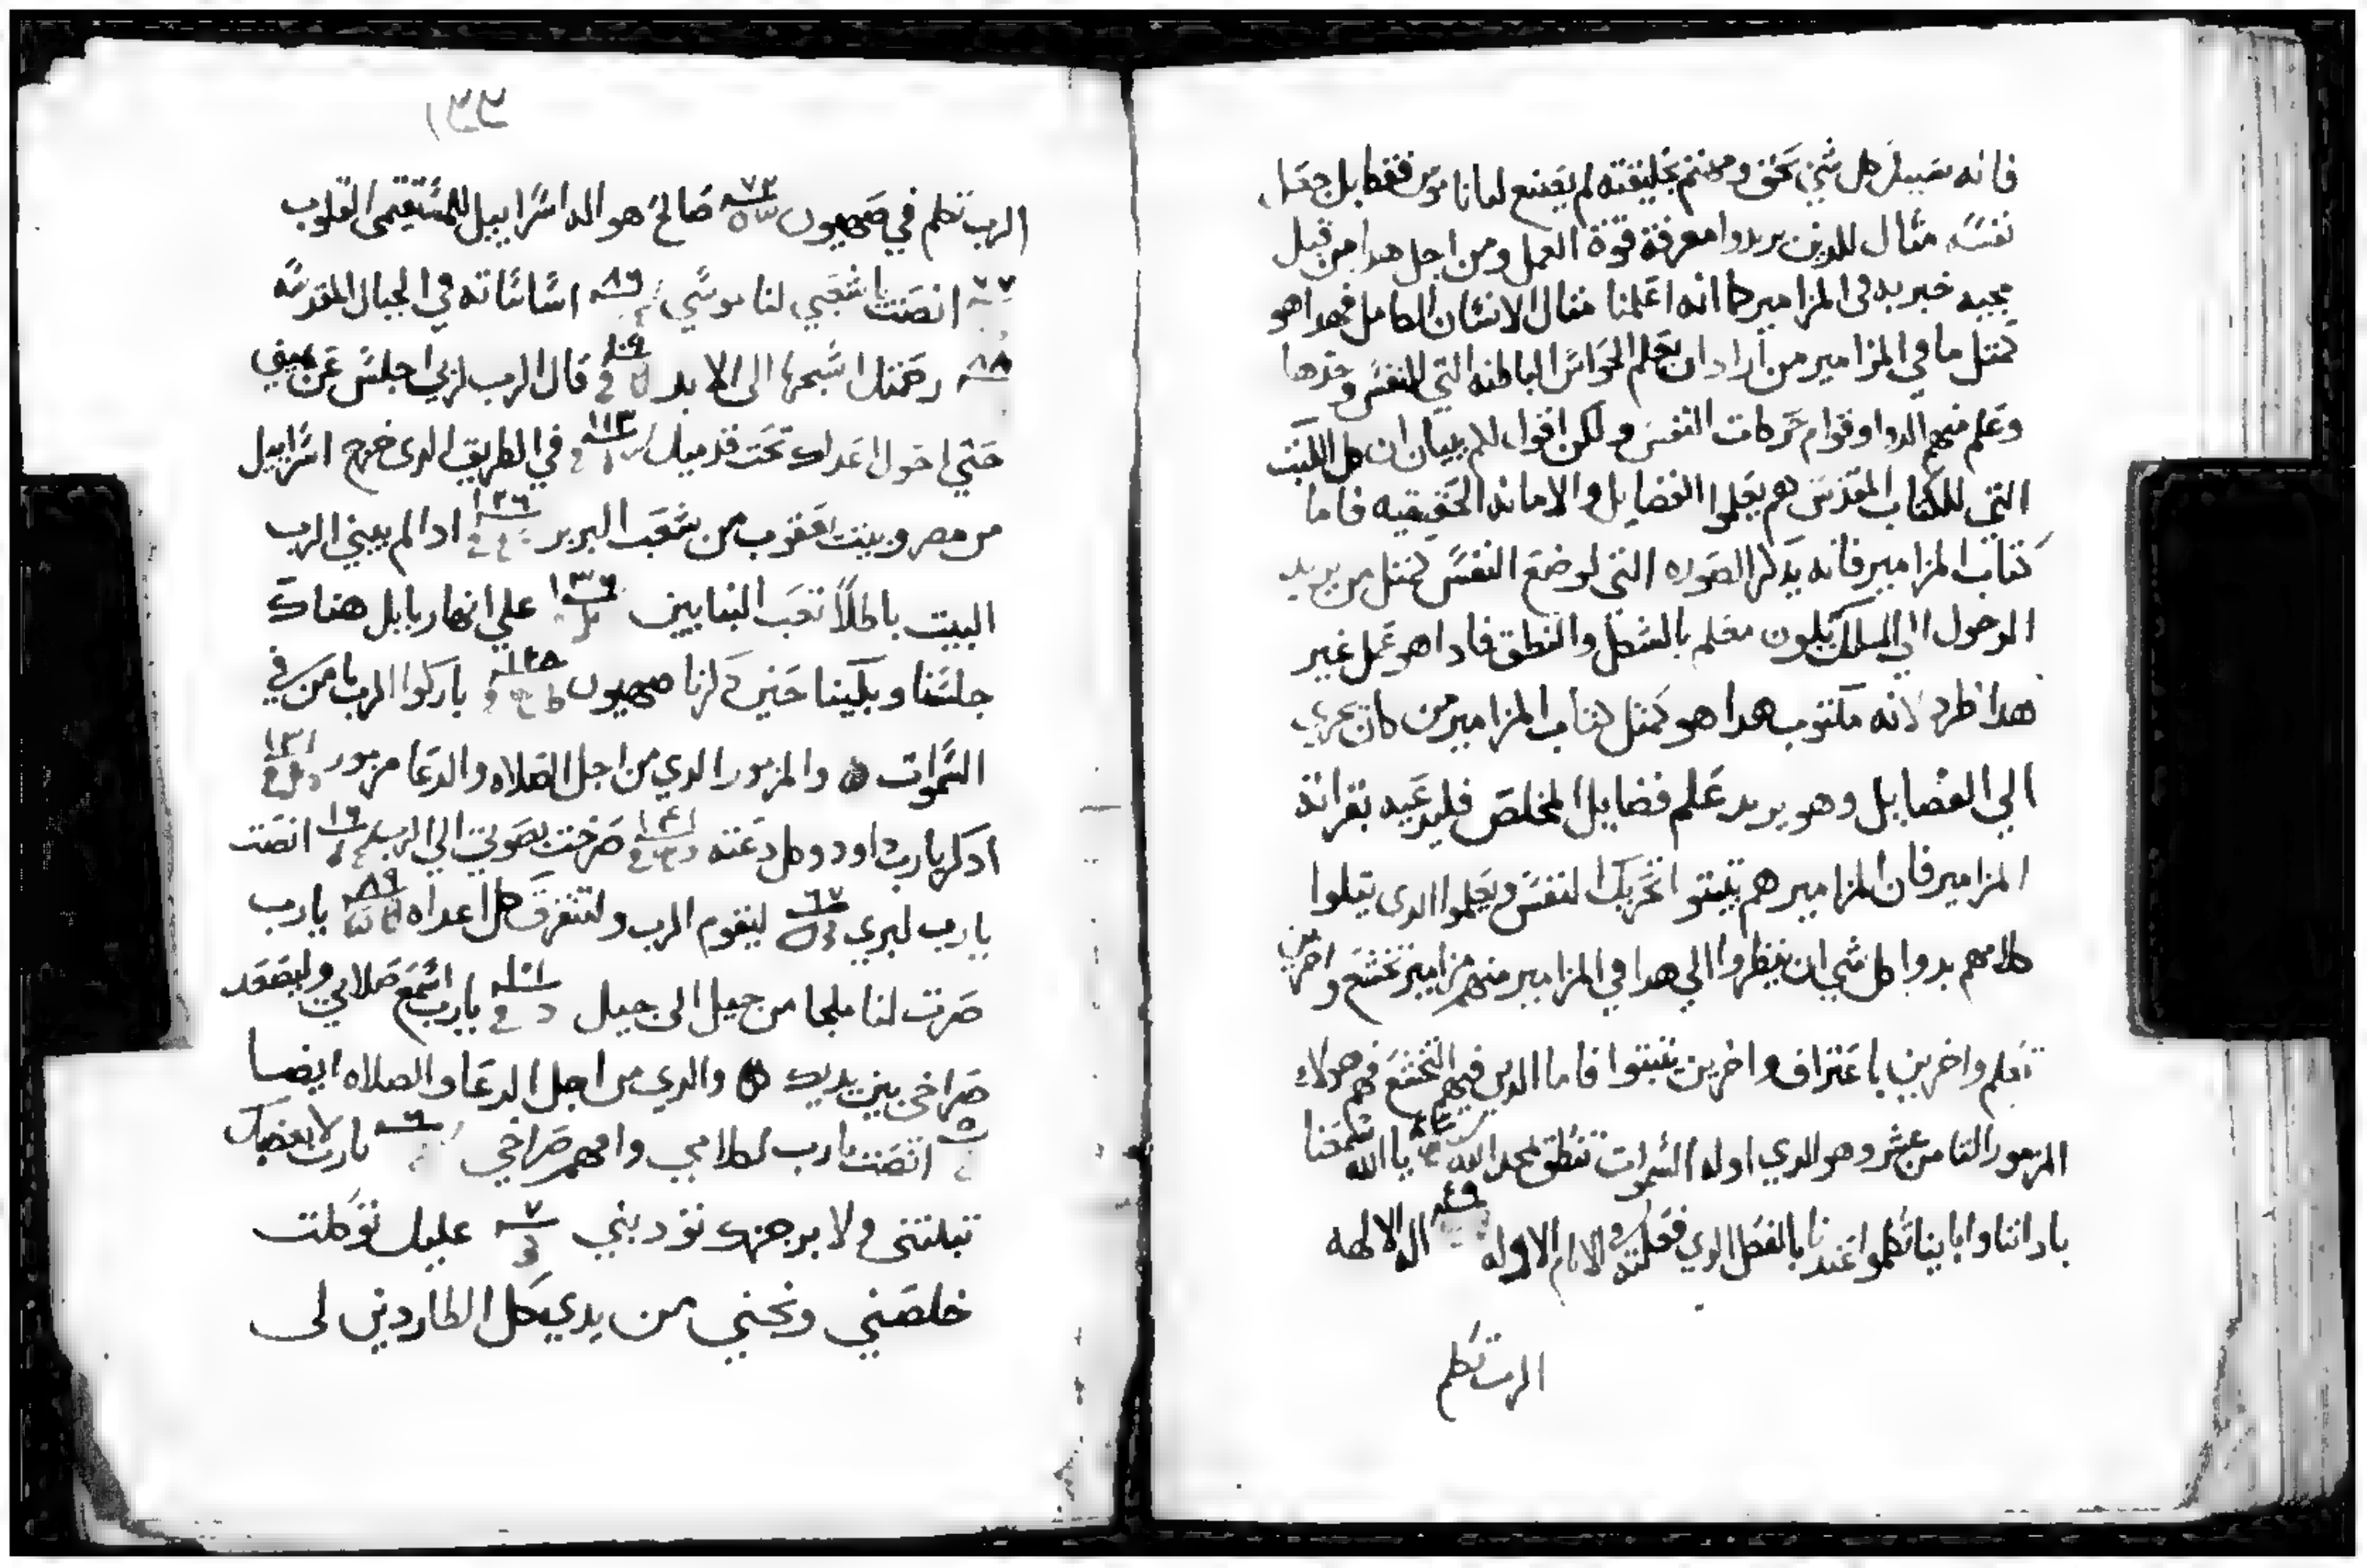 فانه سبيل كل شي بحق ومهتم بخليقته لم يصنع لنا ناموس فقط بل جعل
نفسه مثال للدين يريدوا معرفة قوة العمل ومن اجل هدا من قبل
مجيه خبر به في المزامير كما انه اعلمنا مثال الانسان الكامل فهدا هو
كمتل ما في المزامير من اراد ان يعلم الحواس الباطنه التي للنفس وحدها
وعلم منهم الدوا وقوام حركات النفس ولكن اقول للم ببيان ان كل الكتب
التي للكتاب المقدس هم يعلموا الفضايل والامانه الحقيقيه فاما
كتاب المزامير فانه يدكر الصوره التي لوضع النفس كمتل من يريد
الدخول الي الملك يكون معلم بالشكل والنطق فادا هو عمل غير
هدا طرد لانه مكتوب هدا هو كمتل كتاب المزامير من كان يجري
الي الفضايل وهو يريد علم فضايل المخلص فليدعيه بقراة
المزامير فان المزامير هم يثبتوا تحريك النفس ويعلموا الدي يتلوا
كلامهم بدوا كل شي ان ينظروا الي هدا في المزامير منهم مزامير تخشع واخرين
تعلم واخرين باعتراف واخرين يثبتوا فاما الدين فيهم التخشع فهم هولاء
المزمور الثامن عشر وهو الدي اوله السموات تنطق بمجد الله يا الله سمعنا
باداننا وابايناتكلموا عندنا بالفعل الدي فعلته في الايام الاوله ٤٩ اله الالهه
الرب تكلم
١٣٤
الرب تكلم في صهيون ٧٢ صالح هو اله اسراييل للمستقيمى القلوب
٧٧ انصت يا شعبي لناموسي ٨٦ اساساته في الجبال المقدسه
٨٨ رحمتك اسبحها الى الابد ١٠٩ قال الرب لربي اجلس عن يميني
حتي اجعل اعداك تحت قدميك ١١٣ في الطريق الدى خرج اسراييل
من مصر وبيت يعقوب من شعب البربر ١٢٦ ادا لم يبني الرب
البيت باطلاً تعب البنايين ١٣٦ علي انهار بابل هناك
جلسنا وبكينا حين دكرنا صهيون باركوا الرب يا من في
السموات والمزمور الدي من اجل الصلاه والدعا مزمور ١٣١
ادكر يارب داود وكل دعته ١٤١ صرخت بصوتي الي الرب ١٦ انصت
يارب لبري ٦٧ ليقوم الرب ولتتفرق كل اعداه ٨٩ يارب
صرت لنا ملجا من جيل الى جيل ١٠١ يارب اسمع صلاتي وليصعد
صراخى بين يديك والدي من اجل الدعا والصلاه ايضا
٥ انصت يارب لكلامي وافهم صراخي ٦ يارب لا بغضبك
تبكتني ولا برجزك تودبني ٧ عليك توكلت
خلصني ونجني من يدي كل الطاردين لى